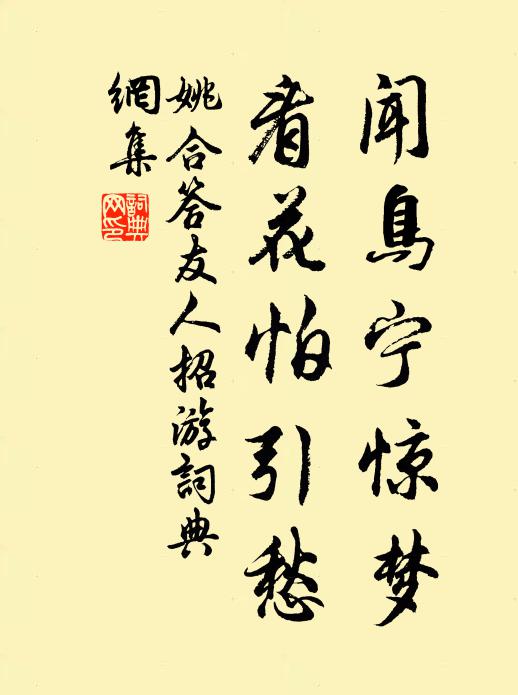 闻鸟宁惊梦
看花怕引愁
姚合答友人招游詞典
網集
詞典
网印